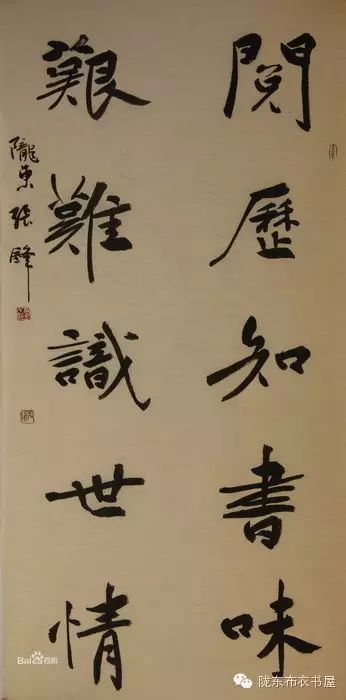 閱歷知書味
艱難識世情
隴東張鋒
Bai百科
陇东布衣书屋